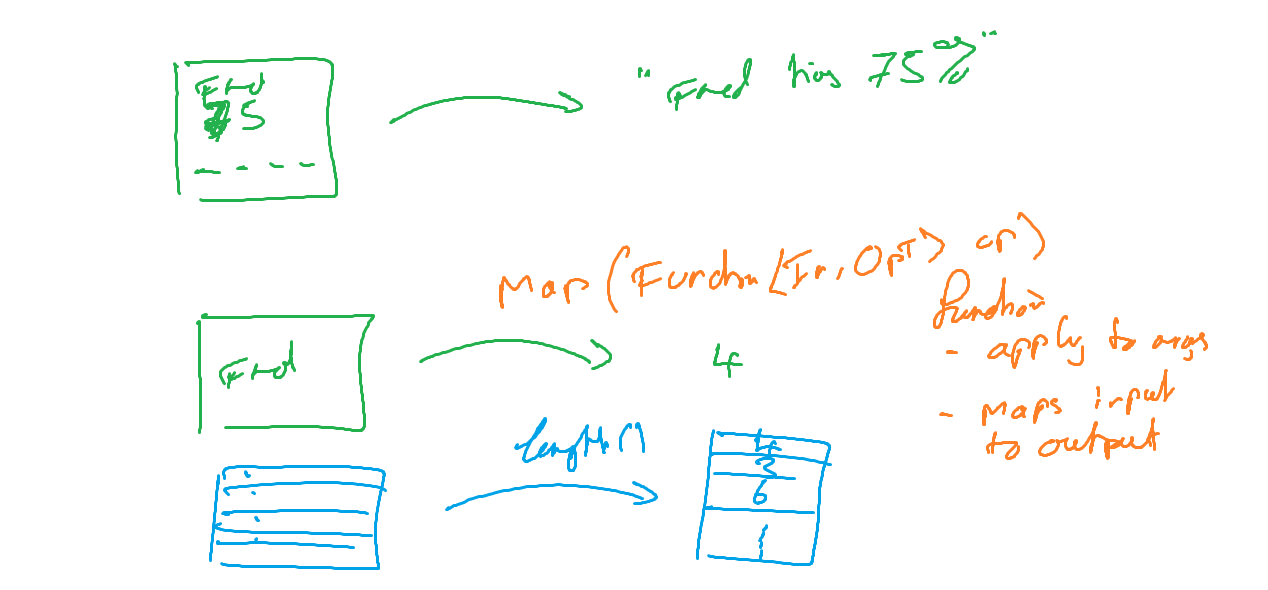 Fred
75
"Fred has 75%"
Map(Function[In, OpT> op)
function
- apply to args
- maps input
to output
Fred
4
length()
4
3
6
1